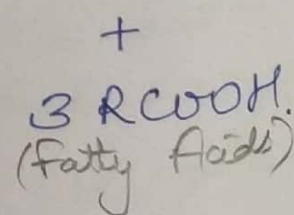 +
3 RCOOH.
(Fatty Acids)